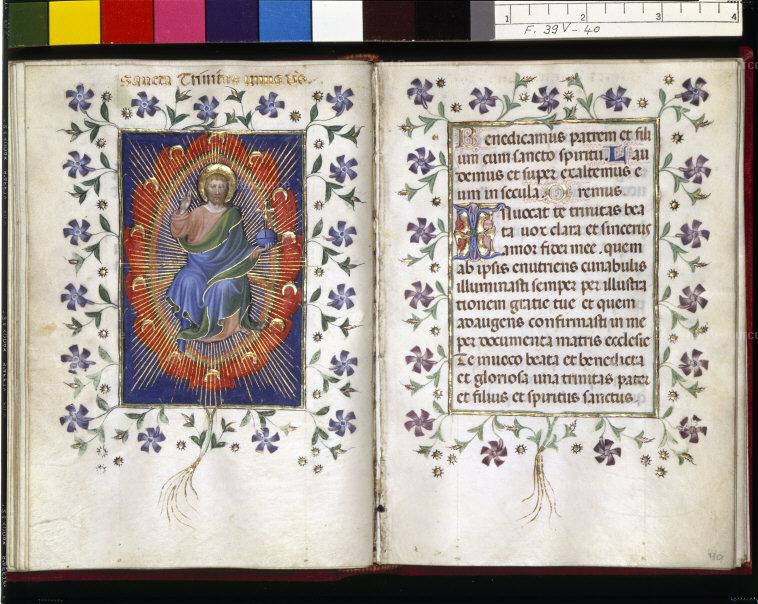 1 2 3 4
F. 39 V - 40
Sancta Trinitas unus
Benedicamus patrem et fili
um cum sancto spiritu. Lau
demus et super exaltemus e
um in secula. Oremus.
Invocat te trinitas bea
ta vox clara et sincerus
amor fidei mee. quem
ab ipsis enutriens cunabulis
illuminasti semper per illustra
tionem gratie tue et quem
adaugens confirmasti in me
per documenta matris ecclesie
Te invoco beata et benedicta
et gloriosa una trinitas pater
et filius et spiritus sanctus
40